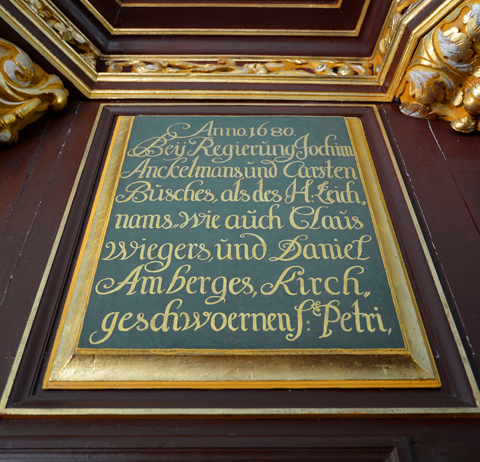 Anno 1680.
Bey Regierüng Jochim
Anckelmans ünd Carsten
Büsches, als des H. Leich,,
nams, wie aüch Claüs
wiegers, ünd Daniel
Amberges, Kirch,,
geschwoernen S:te Petri,